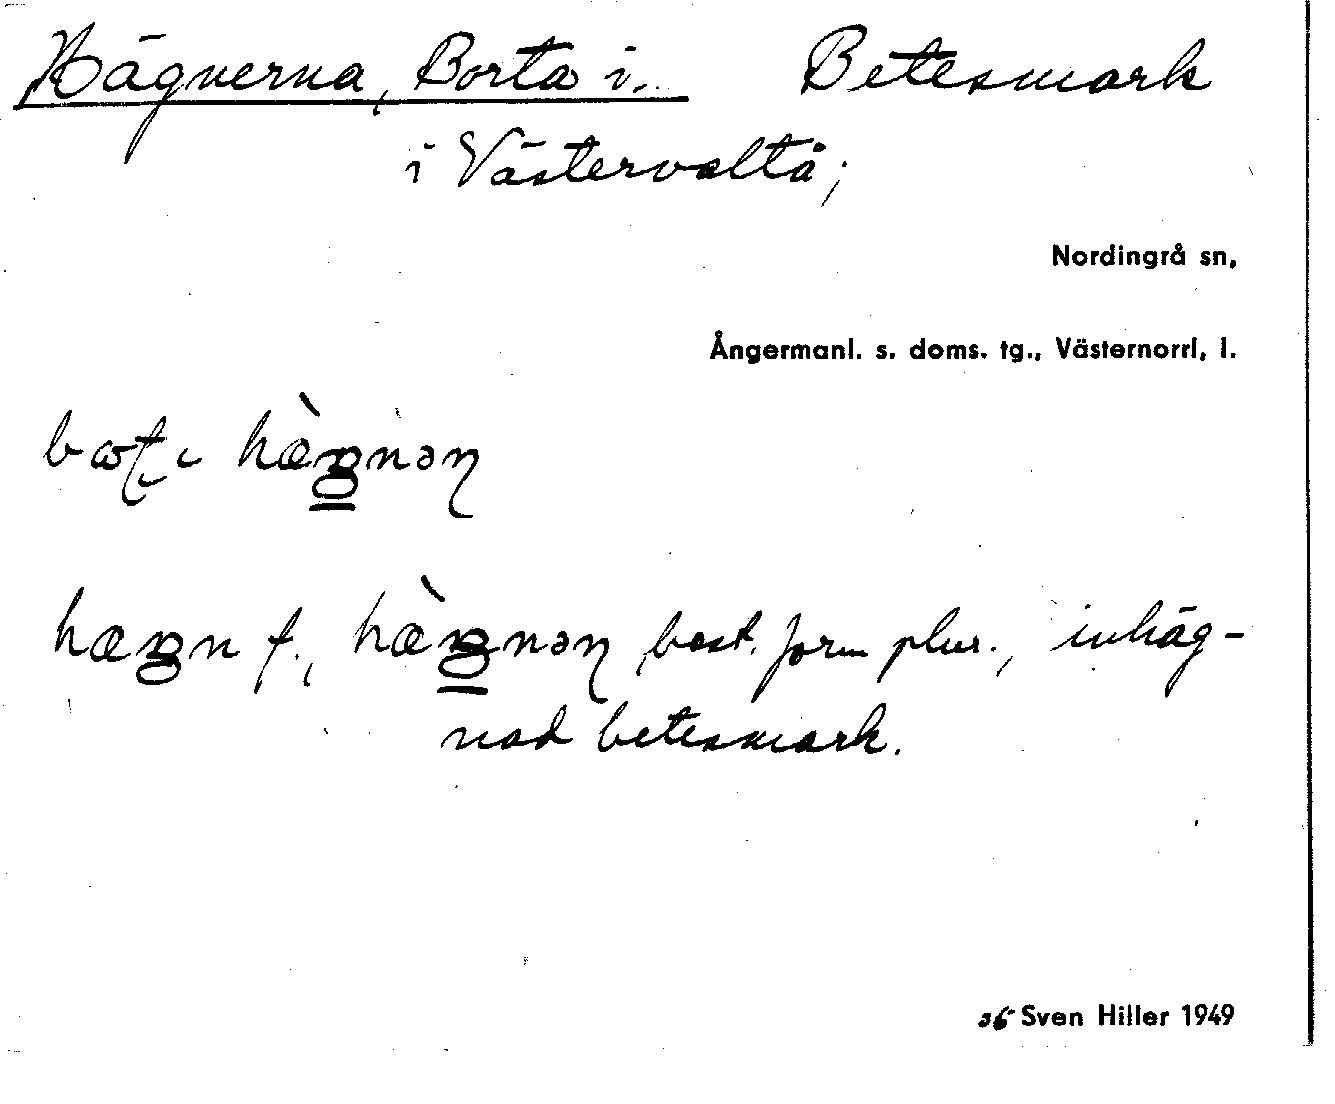 Hägnerna, Borta i. Betesmark
i Västervaltå;
Nordingrå sn,
Ångermanl. s. doms. tg., Västernorrl, l.
hæŋn f., hæ̀ŋnəɳ best. form plur., inhäg-
nad betesmark.
Sven Hiller 1949